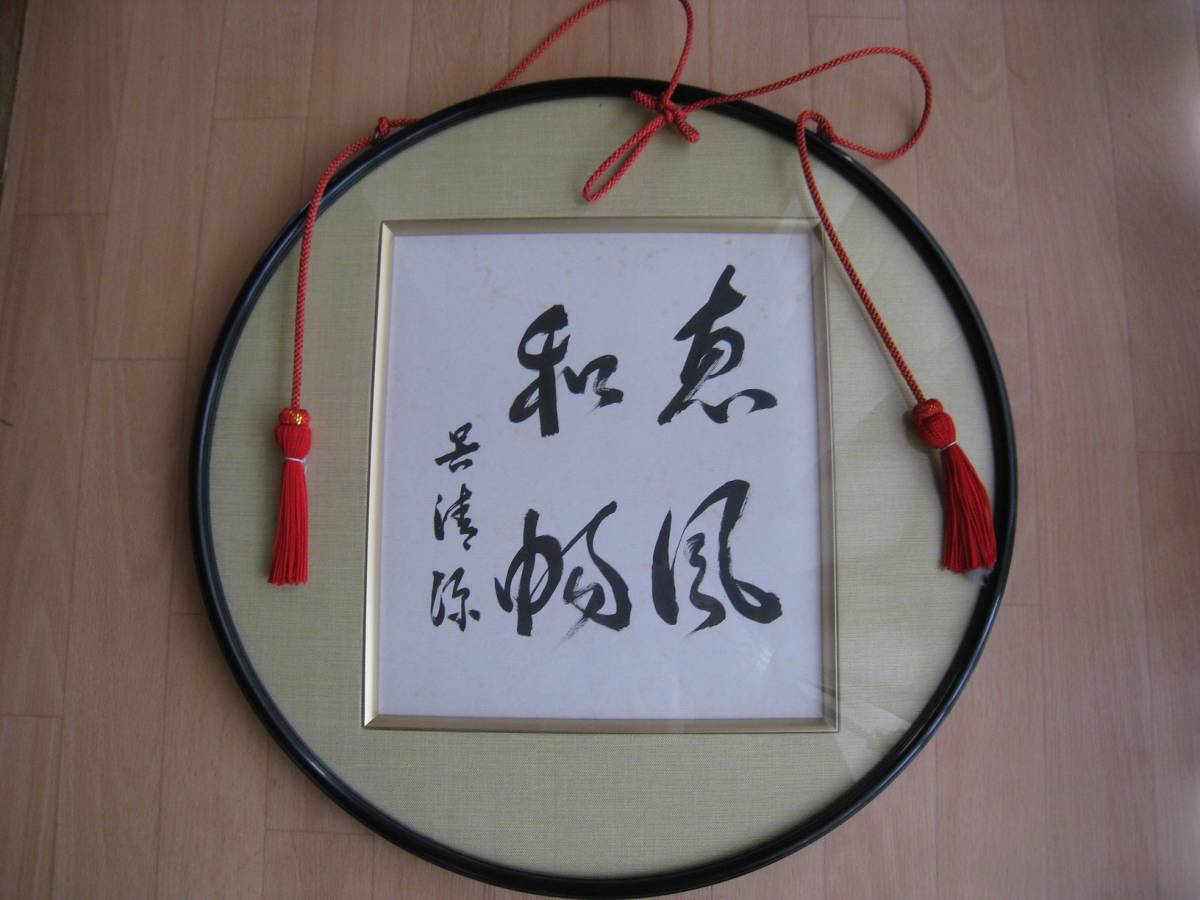 惠風
和暢
呉清源